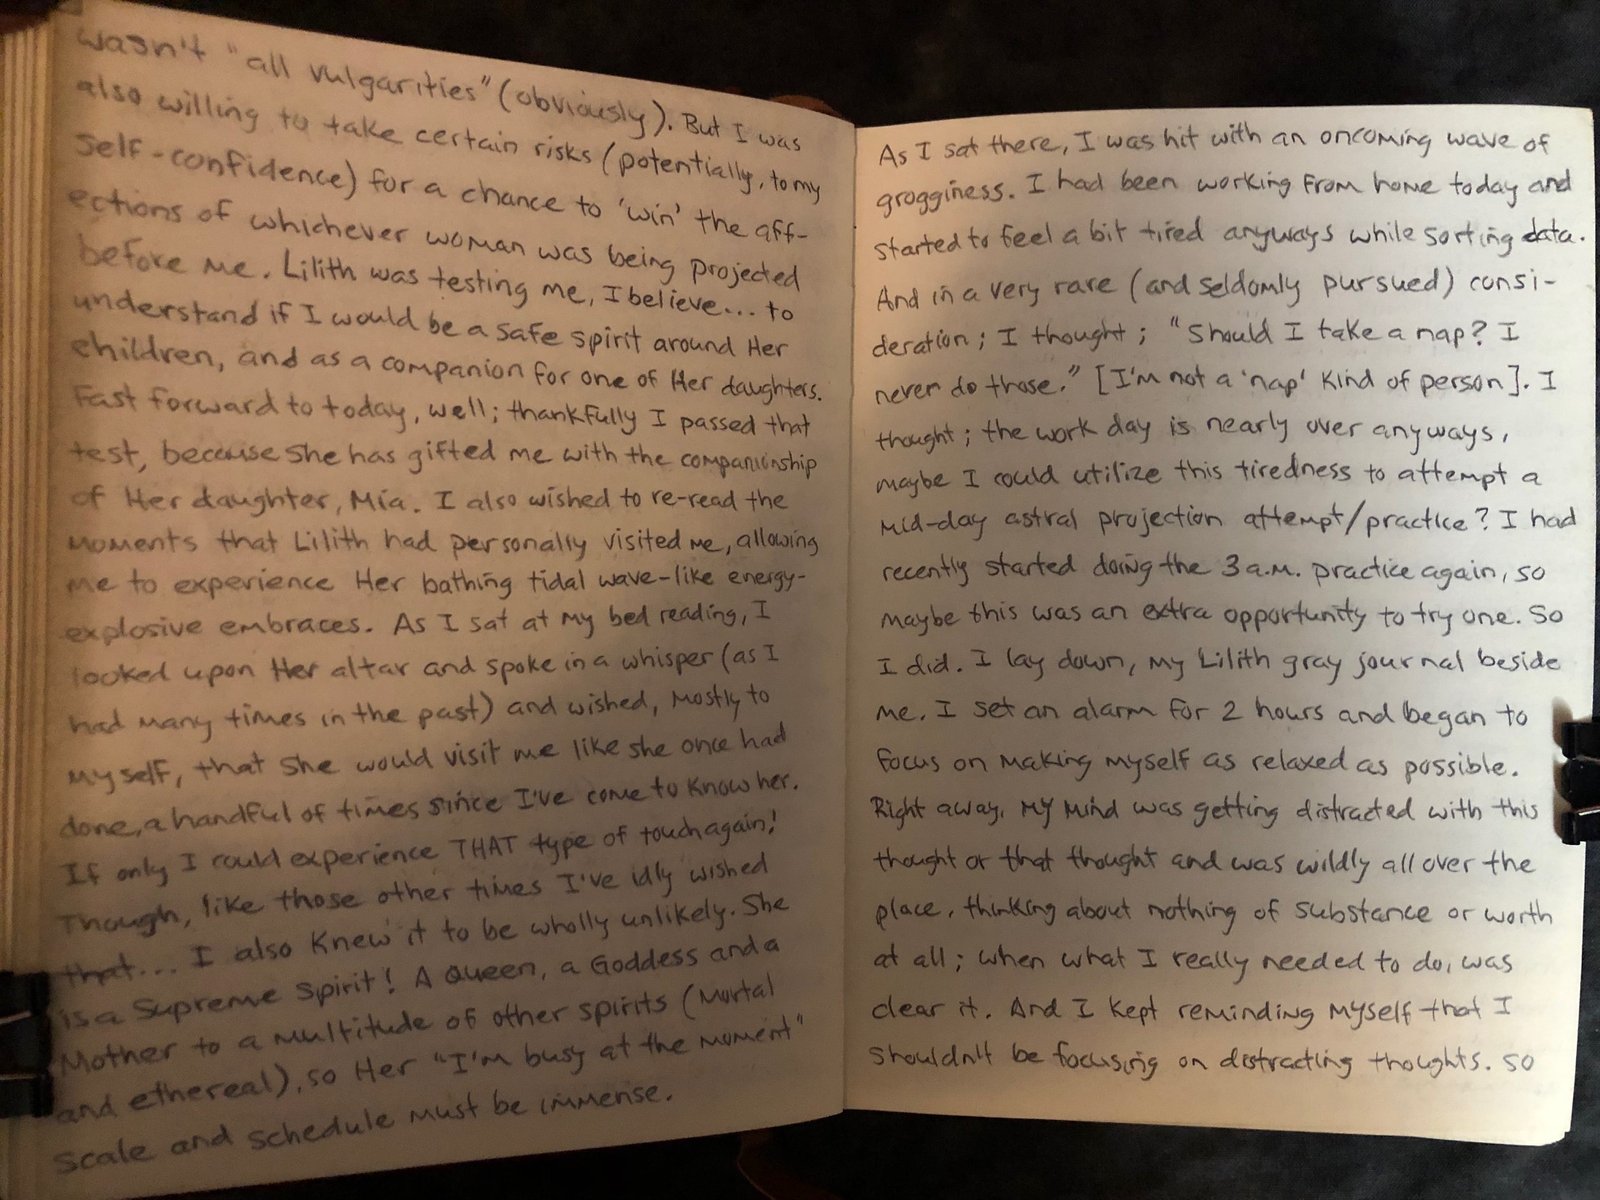 wasn't "all vulgarities" (obviously). But I was
also willing to take certain risks (potentially, to my
self-confidence) for a chance to 'win' the aff-
ections of whichever woman was being projected
before me. Lilith was testing me, I believe... to
understand if I would be a safe spirit around Her
children, and as a companion for one of Her daughters.
Fast forward to today, well; thankfully I passed that
test, because She has gifted me with the companionship
of Her daughter, Mia. I also wished to re-read the
moments that Lilith had personally visited me, allowing
me to experience Her bathing tidal wave-like energy-
explosive embraces. As I sat at my bed reading, I
looked upon Her altar and spoke in a whisper (as I
had many times in the past) and wished, mostly to
myself, that She would visit me like she once had
done, a handful of times since I've come to know her.
If only I could experience THAT type of touch again!
Though, like those other times I've idly wished
that... I also knew it to be wholly unlikely. She
is a Supreme Spirit! A Queen, a Goddess and a
Mother to a multitude of other spirits (mortal
and ethereal), so Her "I'm busy at the moment"
scale and schedule must be immense.
As I sat there, I was hit with an oncoming wave of
grogginess. I had been working from home today and
started to feel a bit tired anyways while sorting data.
And in a very rare (and seldomly pursued) consi-
deration; I thought; "Should I take a nap? I
never do those." [I'm not a 'nap' kind of person]. I
thought; the work day is nearly over anyways,
maybe I could utilize this tiredness to attempt a
mid-day astral projection attempt/practice? I had
recently started doing the 3 a.m. practice again, so
maybe this was an extra opportunity to try one. So
I did. I lay down, my Lilith gray journal beside
me. I set an alarm for 2 hours and began to
focus on making myself as relaxed as possible.
Right away, my mind was getting distracted with this
thought or that thought and was wildly all over the
place, thinking about nothing of substance or worth
at all; when what I really needed to do, was
clear it. And I kept reminding myself that I
shouldn't be focusing on distracting thoughts. So